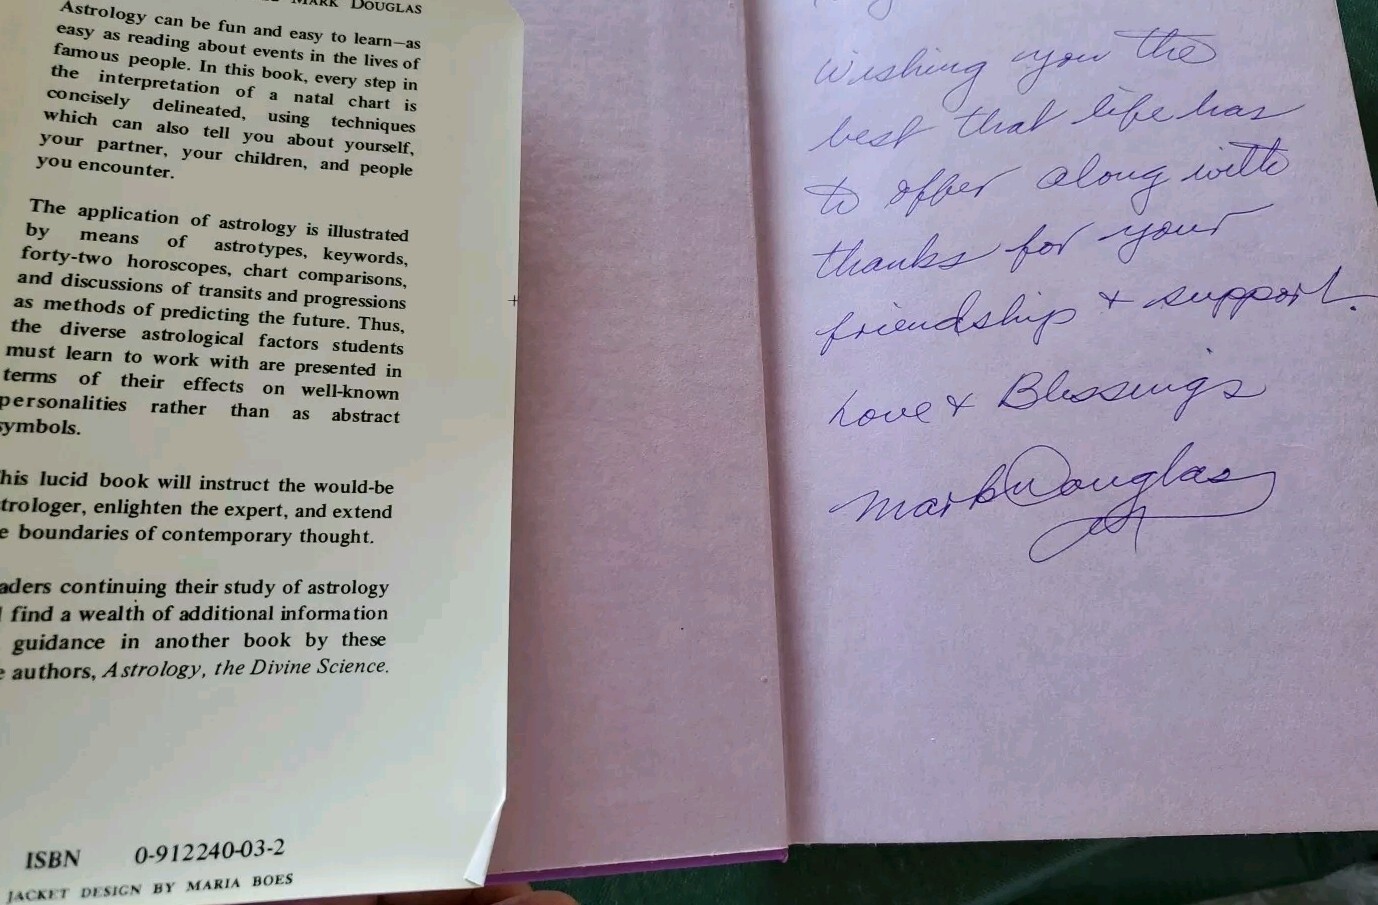 MARK DOUGLAS
Astrology can be fun and easy to learn—as
easy as reading about events in the lives of
famous people. In this book, every step in
the interpretation of a natal chart is
concisely delineated, using techniques
which can also tell you about yourself,
your partner, your children, and people
you encounter.
The application of astrology is illustrated
by means of astrotypes, keywords,
forty-two horoscopes, chart comparisons,
and discussions of transits and progressions
as methods of predicting the future. Thus,
the diverse astrological factors students
must learn to work with are presented in
terms of their effects on well-known
personalities rather than as abstract
symbols.
his lucid book will instruct the would-be
trologer, enlighten the expert, and extend
e boundaries of contemporary thought.
aders continuing their study of astrology
l find a wealth of additional information
guidance in another book by these
e authors, Astrology, the Divine Science.
ISBN 0-912240-03-2
JACKET DESIGN BY MARIA BOES
Wishing you the
best that life has
to offer along with
thanks for your
friendship + support.
Love + Blessings
Mark Douglas